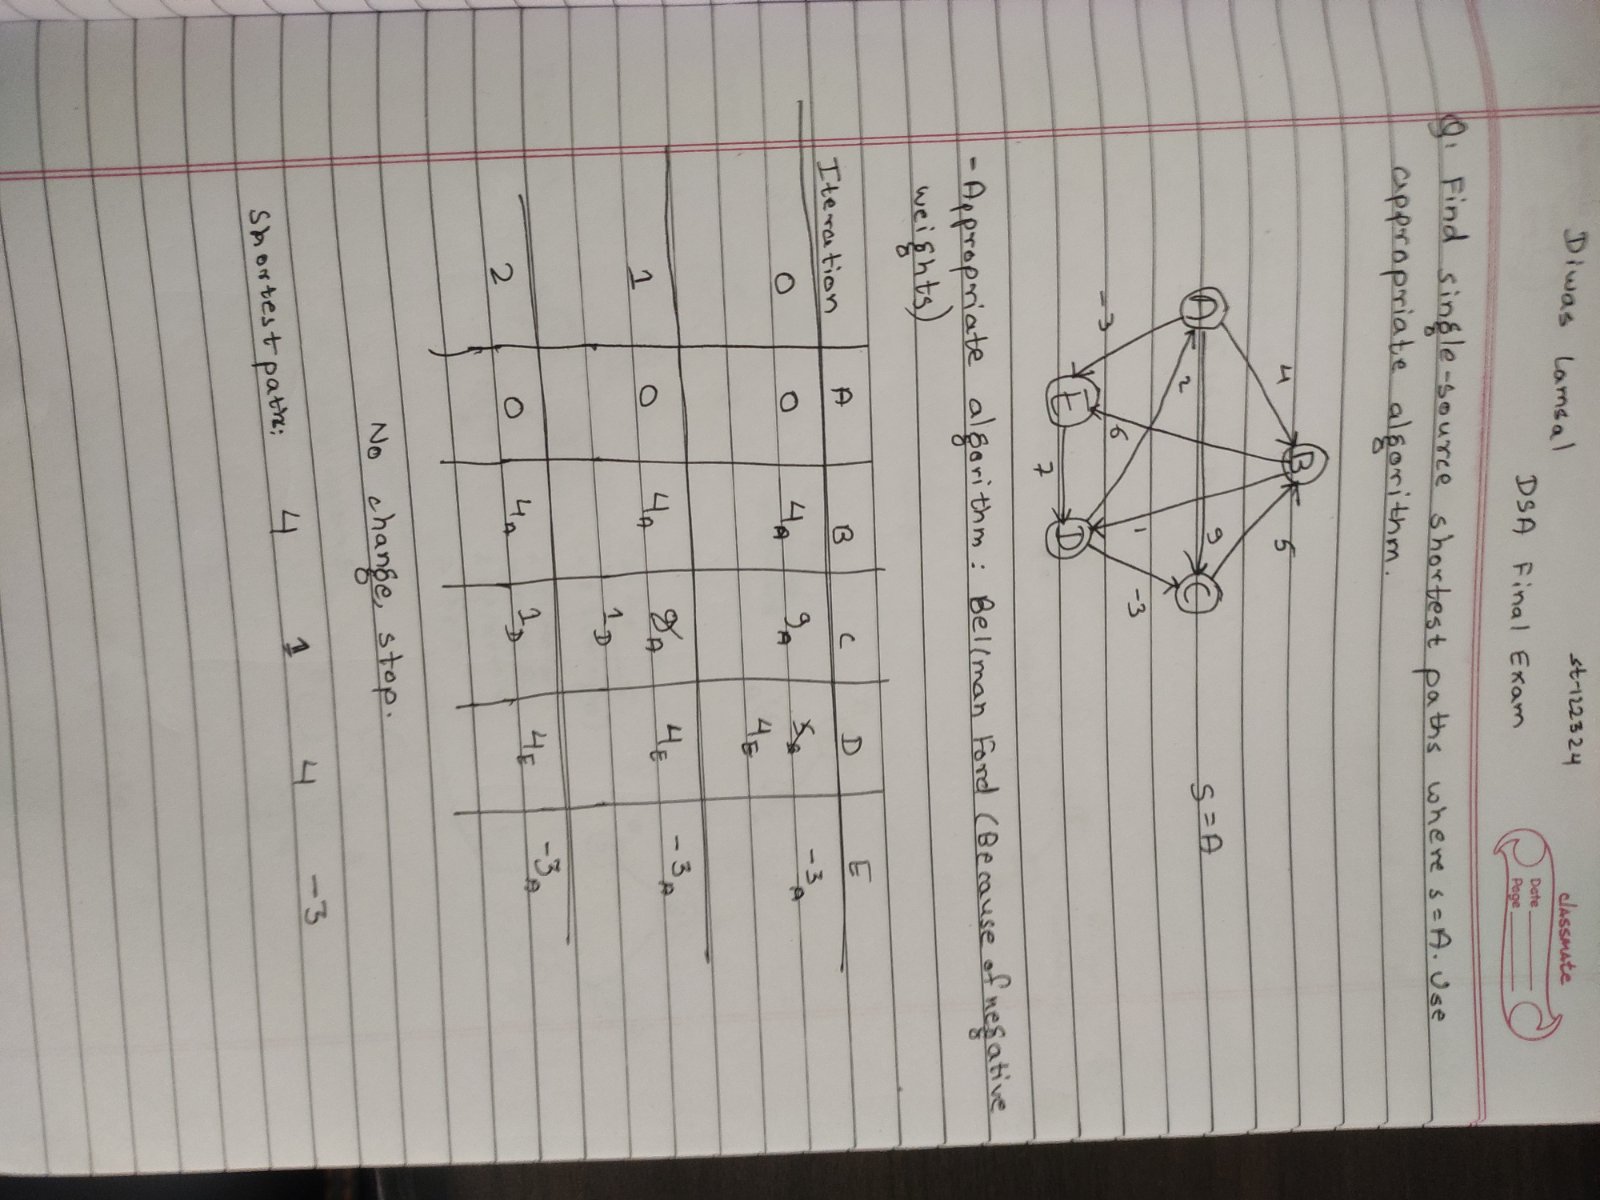 Diwas Lamsal st-122324
classmate
Date
Page
DSA Final Exam
Q: Find single-source shortest paths where s=A. Use
appropriate algorithm.
B
4 5
A 9 C
2
S = A
-3 6 1 -3
E D
7
- Appropriate algorithm: Bellman Ford (Because of negative
weights)
Iteration A B C D E
0 0 4A 9A -3A
4E
1 0 4A 9A 4E -3A
1D
2 0 4A 1D 4E -3A
No change, stop.
Shortest path: 4 1 4 -3